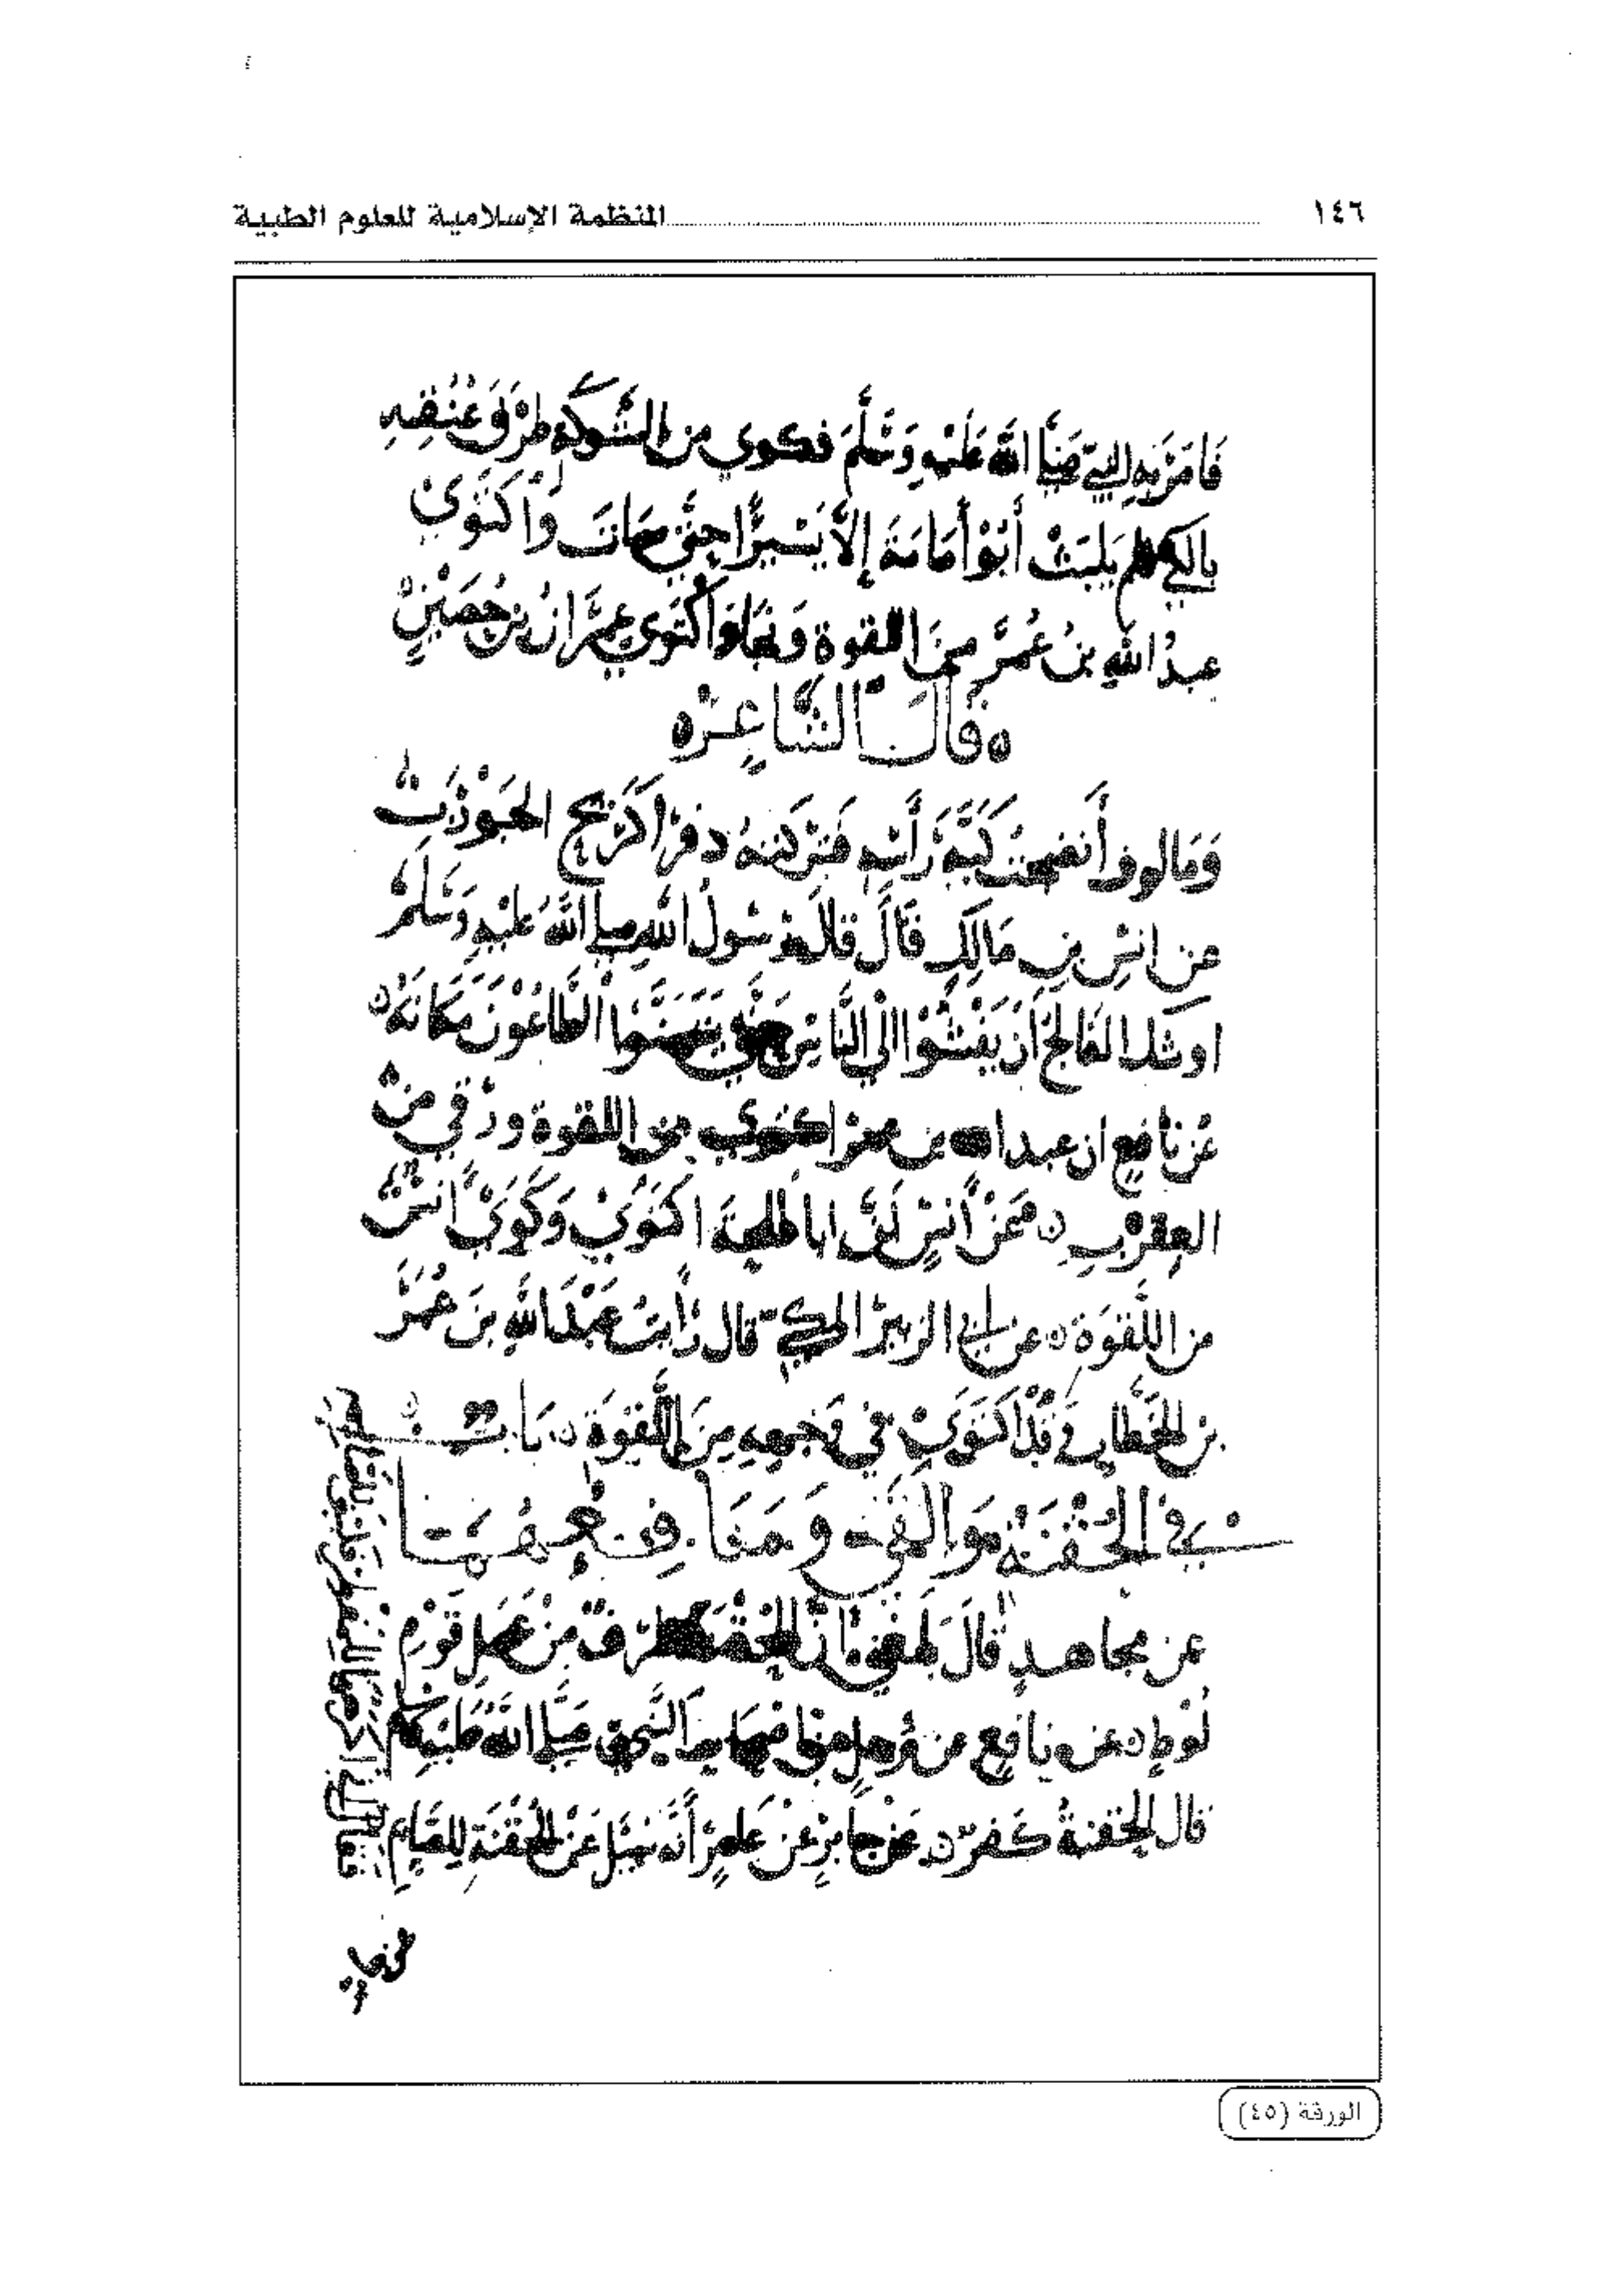 ١٤٦ المنظمة الإسلامية للعلوم الطبية
فَامَرَ بِهِ النبيّ صَلَّى اللَّهُ عَلَيْهِ وَسَلَّمَ فكوي من الشَّوكَة طرفي عُنُقِهِ
بالكي فلم يَلبَثْ أَبُو أُمَامَةَ إِلاَّ يَسْيرًا حَتَّى مَاتَ وَاكتَوَى
عبدُ اللهِ بنُ عُمَرَ مِنَ اللقوة وَاكْتَوَى عِمْرَانُ بن حُصَيْنٍ
ه قالَ الشاعر ه
أَنضَجت كَيَّةُ رَأسِهِ فَتَركتهُ دفرًا كَرِيح الجَوْرَبِ
عن انسِ بنِ مَالِكٍ قَالَ قال رسُولُ اللهِ صلى اللَّهُ عَلَيْهِ وَسَلَّمَ
اوشك الفَالجُ أَنْ يَفْشُوَا في النَّاسِ حَتَّى يَتَمَنَّوا الطَّاعُوْنَ مَكَانَهُ ه
عَن نَافِعٍ ان عبد الله بن عمر اكتوى من اللقوة ورُقي مِنَ
العقربِ ه عَنْ أَنَسٍ أَنَّ ابا طلحةَ اكتَوَى وَكَوَى أَنَسٌ
من اللَّقوَة ه عن ابي الزبير المكيّ قال رَأَيتُ عَبْدَ اللهِ بنَ عُمَرَ
بن الخَطَّاب وَقَد اكتَوَى في وَجهِهِ مِنَ اللَّقوَةِ ه بَابٌ
في الحُقْنَةِ وَالقَيْ وَمَنَافِعِهِمَا
عن مجاهدٍ قَالَ الحُقنَة طَرَفٌ مِنْ عَمَلِ قَوْمِ
لُوْطٍ ه عن نافعٍ عن رَجلٍ من اصحاب النَّبِيّ صَلَّى اللَّهُ عَلَيْهِ
قال الحُقنةُ كُفرٌ ه عَن جابرٍ عَنْ عَامِرٍ أَنَّهُ سُئِلَ عَنِ الحُقْنَةِ لِلصَّائِمِ
الورقة (٤٥)